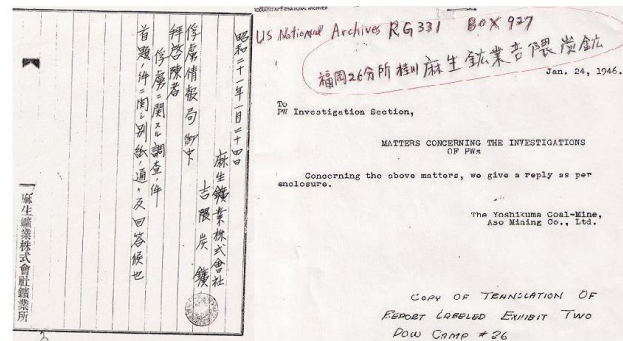 昭和二十一年一月二十四日
麻生鑛業株式會社
吉隈炭鑛
俘虜情報局御中
拝啓陳者
俘虜ニ関スル調査ノ件
首題ノ件ニ関シ別紙ノ通リ及回答候也
麻生鑛業株式會社鑛業所
US National Archives RG 331 BOX 927
福岡26分所 桂川 麻生鉱業吉隈炭鉱
Jan. 24, 1946.
To
PW Investigation Section,
MATTERS CONCERNING THE INVESTIGATIONS
OF PWs
Concerning the above matters, we give a reply as per
enclosure.
The Yoshikuma Coal-Mine,
Aso Mining Co., Ltd.
COPY OF TRANSLATION OF
REPORT LABELED EXHIBIT TWO
POW CAMP #26